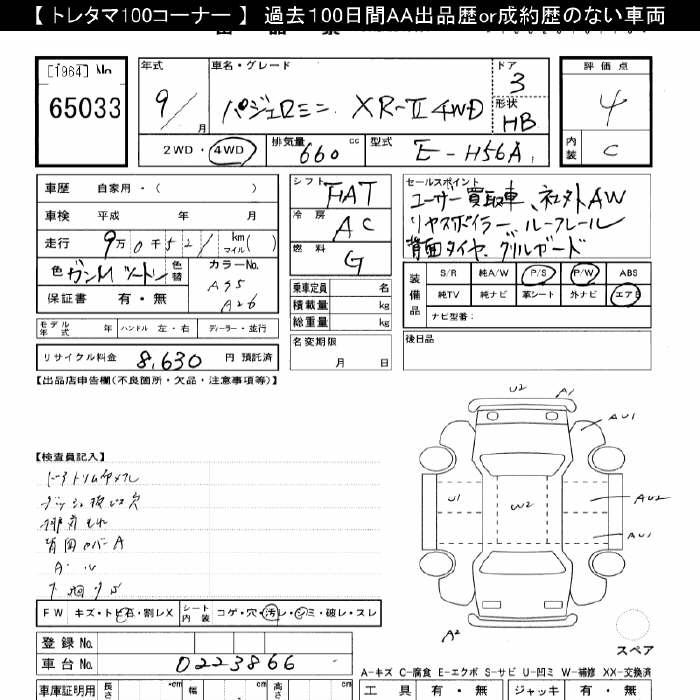 【 トレタマ100コーナー 】 過去100日間AA出品歴or成約歴のない車両
[1964] No
65033
年式
9/
月
車名・グレード
パジェロミニ XR-Ⅱ 4WD
ドア
3
形状
HB
評価点
4
内装
C
2WD・4WD
排気量
660
cc
型式
E-H56A
車歴 自家用・( )
車検 平成 年 月
走行 9万0千521 km マイル( )
色 ガンM ツートン 色替
カラーNo.
A95
A26
保証書 有・無
モデル年式 年 ハンドル 左・右 ディーラー・並行
リサイクル料金 8,630 円 預託済
シフト
FAT
冷房
AC
燃料
G
乗車定員 名
積載量 kg
総重量 kg
名変期限
月 日
セールスポイント
ユーザー買取車、社外AW
リヤスポイラー、ルーフレール
背面タイヤ、グリルガード
装備品
S/R 純A/W P/S P/W ABS
純TV 純ナビ 革シート 外ナビ エアB
ナビ型番：
後日品
【出品店申告欄(不良箇所・欠品・注意事項等)】
【検査員記入】
背面カバーA
U2 A1
AU1
U1 W2 AU2
AU1
A2
スペア
FW キズ・トビ石・割レX シート内装 コゲ・穴・汚レ・シミ・破レ・スレ
登録No.
車台No. 0223866
A-キズ C-腐食 E-エクボ S-サビ U-凹ミ W-補修 XX-交換済
車庫証明用 長さ cm 幅 cm 高さ cm
工具 有・無 ジャッキ 有・無